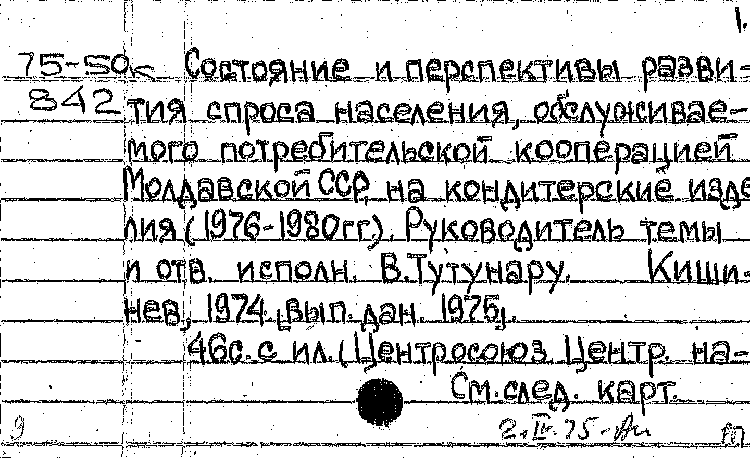 1.
75-50к Состояние и перспективы разви-
842 тия спроса населения, обслуживае-
мого потребительской кооперацией
Молдавской ССР, на кондитерские изде
лия (1976-1980гг). Руководитель темы
и отв. исполн. В.Тутунару. Киши-
нев, 1974. [вып. дан. 1975].
46с. с ил. (Центросоюз. Центр. на-
См. след. карт.
9 2.IV.75-